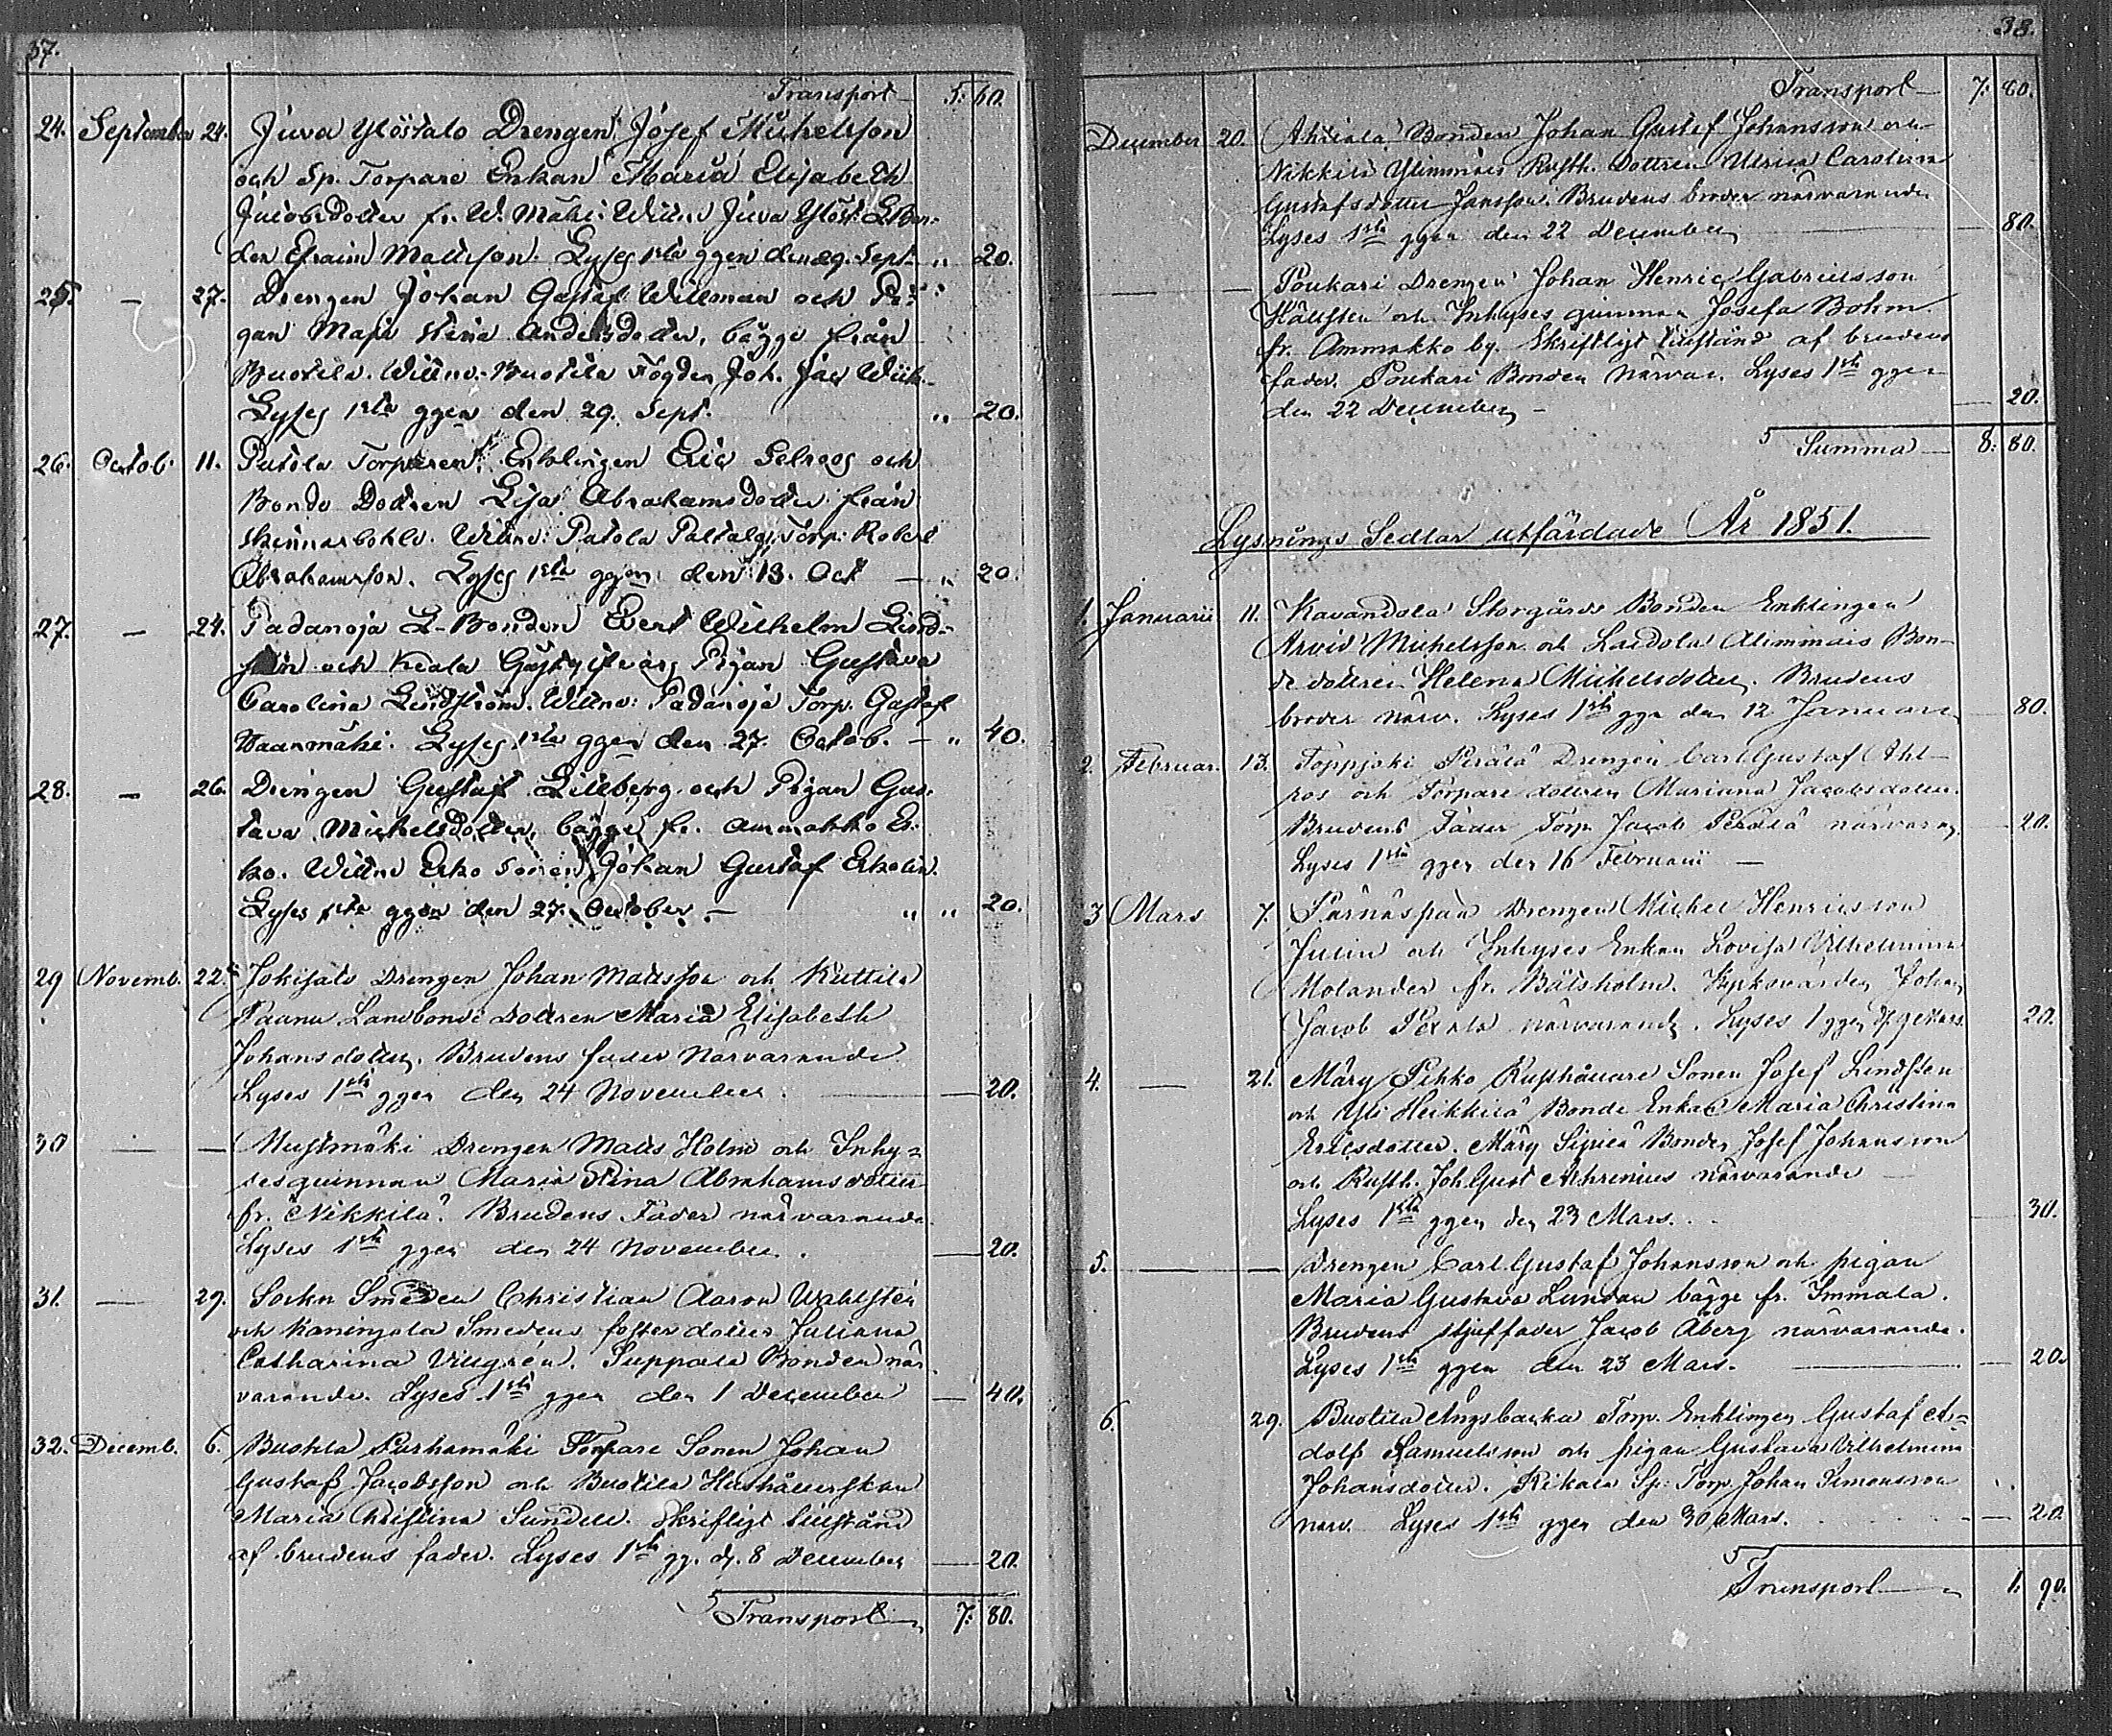 37.
Transport 5: 60.
24. September 24. Juva Ylöstalo Drengen Josef Michelsson
och Sp. Torpare Enkan Maria Elisabeth
Jacobsdotter fr. W. Mäki. Wittne Juva Ylöst. LBon-
den Efraim Mattsson. Lyses 1sta ggen den 29. Sept. " 20.
25. — 27. Drengen Johan Gustaf Willman och Pi-
gan Maja Stina Andersdotter, bägge från
Buotila. Wittne: Buotila Fogden Joh. Jac
Lyses 1sta ggen den 29. Sept. " 20.
26. Octob. 11. Patola Torparen Enklingen Eric Selroos och
Bonde Dottren Lisa Abrahamsdotter från
Skinnarbohle. Wittne: Patola Torp: Robert
Abrahamsson. Lyses 1sta ggen den 13. Oct — " 20.
27. — 24. Padanoja L-Bonden Evert Wilhelm Lind-
och Keala Gästgifvars Pigan Gustava
Carolina Lindström. Wittne: Padanoja Torp. Gustaf
Haanmäki. Lyses 1sta ggen den 27. Octob. — " 40.
28. — 26. Drengen Gustaf Lilleberg och Pigan Gus-
tava Michelsdotter, bägge fr. Ammakko Er-
ko. Wittne Erko Sonen Johan Gustaf Erkolin.
Lyses 1sta ggen den 27. October. — " " 20.
29 Novemb. 22. Jokisalo Drengen Johan Mattsson och Kuttila
Paanu Landbonde Dottren Maria Elisabeth
Johansdotter. Brudens fader Närvarande
Lyses 1sta ggen den 24 November. — 20.
30 — — Mustmäki Drengen Matts Holm och Inhy-
sesquinnan Maria Stina Abrahamsdotter
fr. Nikkilä. Brudens Fader närvarande.
Lyses 1sta ggen den 24 November. — 20.
31. — 29. Sockn Smeden Christian Aaron Wahlstén
och Kaningola Smedens foster dotter Juliana
Catharina Villgrén. Suppala Bonden när-
varande. Lyses 1sta ggen den 1 December — 40.
32. Decemb. 6. Buotila Purhamäki Torpare Sonen Johan
Gustaf Jacobsson och Buotila Hushållerskan
Maria Christina Sundell. Skriftligt tillstånd
af brudens fader. Lyses 1sta gg. d. 8 December — 20.
Transport 7: 80.
38.
Transport 7: 80.
December 20. Ahtiala Bonden Johan Gustaf Johansson och
Nikkilä Ylimmäis Rusth. Dottren Ulrica Carolina
Gustafsdotter Jansson. Brudens broder närvarande
Lyses 1sta ggen den 22 December — 80.
— — Poukari Drengen Johan Henric Gabrielsson
Hällsten och Inhyses quinnan Josefa Bohm
fr. Ammakko by. Skriftligt tillstånd af brudens
fader. Poukari Bonden Närvar. Lyses 1sta ggen
den 22 December — 20.
Summa 8: 80.
Lysnings Sedlar utfärdade År 1851.
1. Januarii 11. Kavandola Storgårds Bonden Enklingen
Arvid Michelsson och Laidola Alimmais Bon-
de dottren Helena Michelsdotter. Brudens
broder närv. Lyses 1sta ggn den 12 Januari 80.
2. Februar. 13. Toppjoki Perälä Drengen Carl Gustaf Ahl-
ros och Torpare dottren Mariana Jacobsdotter.
Brudens Fader Torp. Jacob Perälä närvarag. — 20.
Lyses 1sta ggen den 16 Februarii —
3 Mars 7. Pärnäspää Drengen Michel Henricsson
Julin och Inhyses Enkan Lovisa Vilhelmina
Molander fr. Bälsholm. Kyrkovärden Johan
Jacob närvarande. Lyses 1 ggen d. 9 Mars. 20.
4. — 21. Märy Pihko Rusthållare Sonen Josef Lindsten
och Yli Heikkilä Bonde Enkan Maria Christina
Ericsdotter. Märy Sipilä Bonden Josef Johansson
och Rusth. Joh Gust Ahrenius närvarande —
Lyses 1sta ggen den 23 Mars. — 30.
5. — — Drengen Carl Gustaf Johansson och pigan
Maria Gustava Lundan bägge fr. Immala.
Brudens stjuffader Jacob Åberg närvarande.
Lyses 1sta ggen den 23 Mars. — 20.
6. 29. Buotila Ängsbacka Torp. Enklingen Gustaf A-
dolf Samuelsson och pigan Gustava Vilhelmina
Johansdotter. Rikala Sp. Torp. Johan Simonsson
närv. Lyses 1sta ggen den 30 Mars. — 20.
Transport 1. 90.